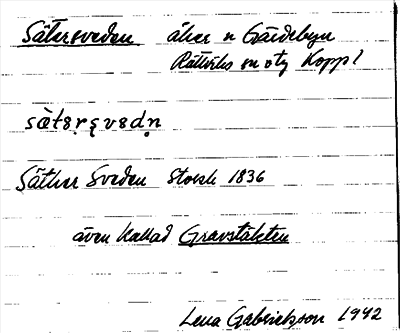 Sätersveden åker n Gärdebyn
Rättviks sn o tg Koppl
sȁtɜr̥ʂvɜdn̥
Säther Sveden Storsk 1836
även kallad Gravstäkten
Lena Gabrielsson 1942